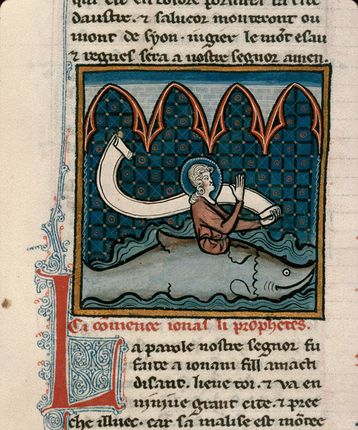 daustre. ⁊ sauueor monteront ou
mont de syon. iugier le mõt esau
⁊ regnes sera a nostre segnor amen.
Ci cõmence ionas li prophetes.
La parole nostre segnor fu
faite a ionam fill amathi
disant. lieue toi. ⁊ ua en
niniue grant cite. ⁊ pree
che illuec. car sa malise est mõtee